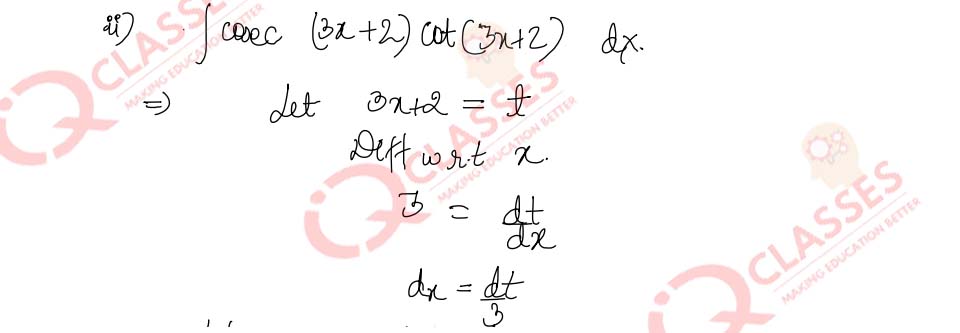 ii) ∫ cosec (3x+2) cot(3x+2) dx.
⇒ Let 3x+2 = t
Diff w.r.t x.
3 = dt/dx
dx = dt/3
IQ CLASSES
MAKING EDUCATION BETTER
IQ CLASSES
MAKING EDUCATION BETTER
IQ CLASSES
MAKING EDUCATION BETTER